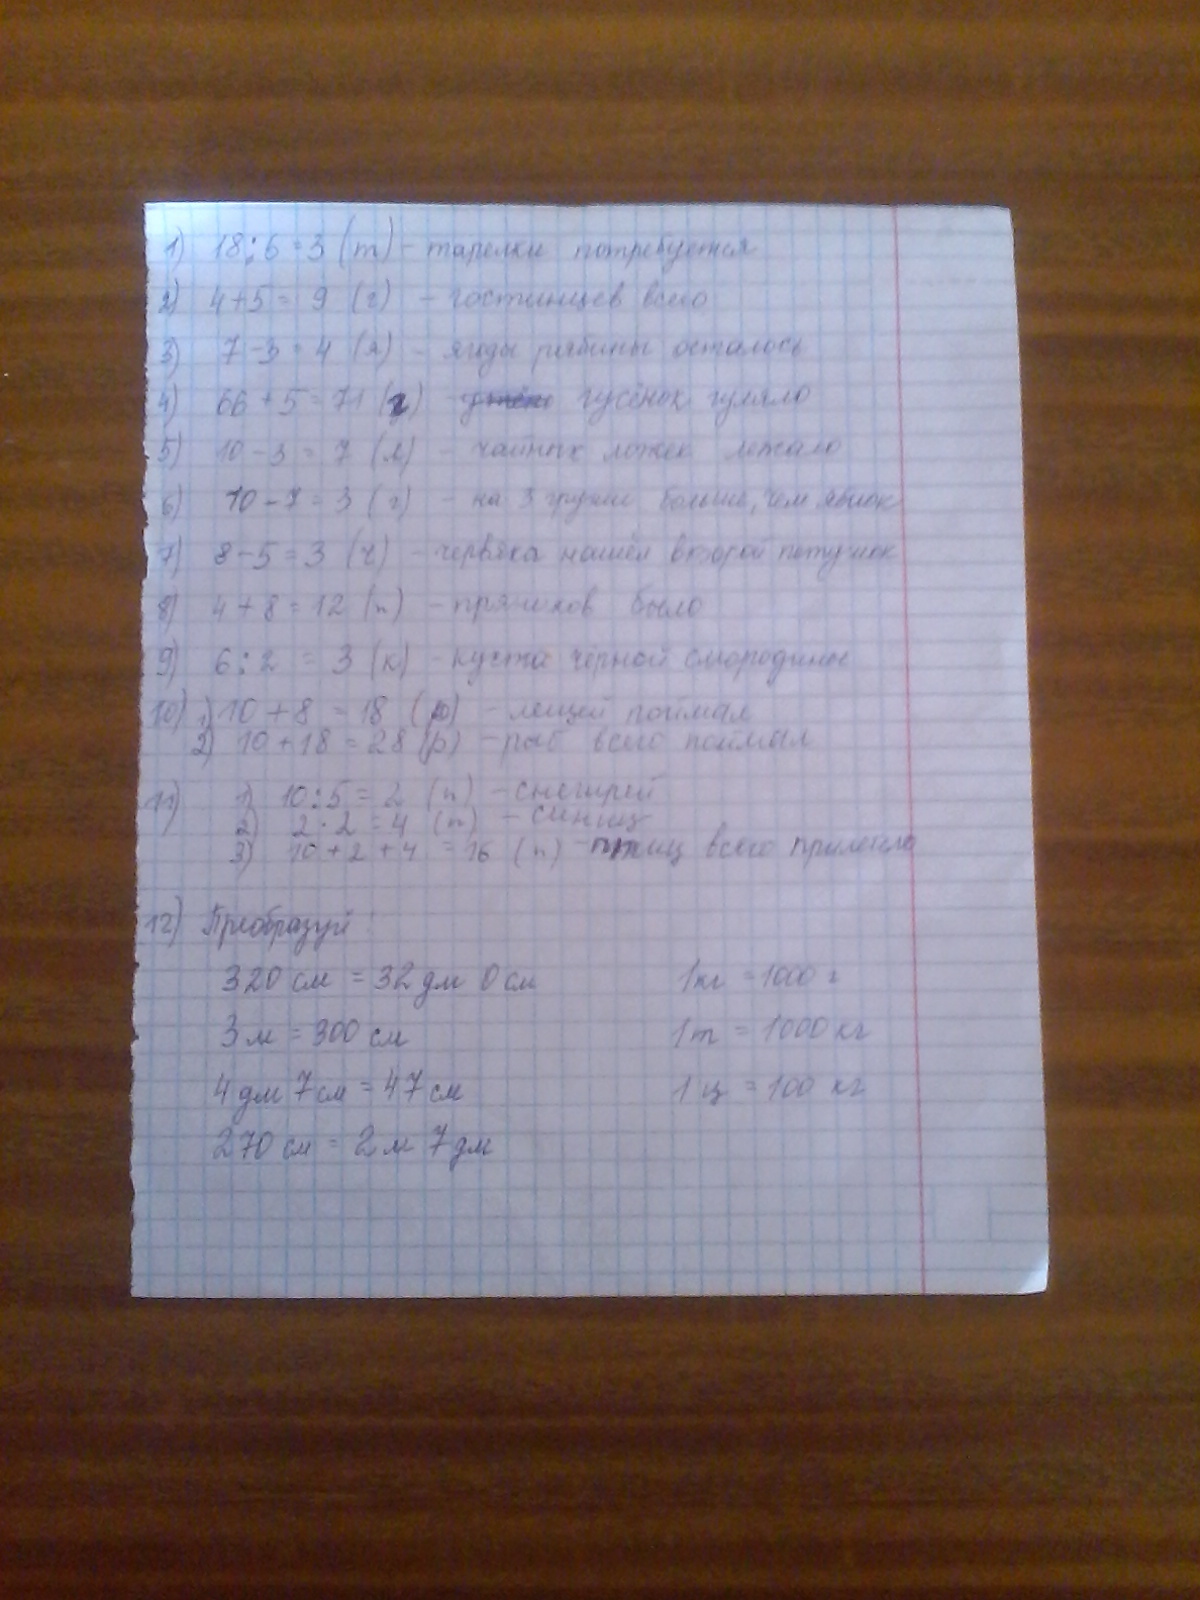 1) 18:6=3 (т) - тарелки потребуется
2) 4+5 = 9 (г) - гостинцев всего
3) 7-3 = 4 (я) - ягоды рябины осталось
4) 66+5=71 (г) - гусёнок гуляло
5) 10-3 = 7 (л) - чайных ложек лежало
6) 10-7=3 (г) - на 3 груши больше, чем яблок
7) 8-5=3 (ч) - червяка нашёл второй петушок
8) 4+8=12 (п) - пряников было
9) 6:2 = 3 (к) - куста чёрной смородины
10) 1) 10+8 = 18 (р) - лещей поймал
2) 10+18=28 (р) - рыб всего поймал
11) 1) 10:5=2 (п) - снегирей
2) 2·2=4 (п) - синиц
3) 10+2+4 =16 (п) - птиц всего прилетело
12) Преобразуй:
320 см = 32 дм 0 см 1 кг = 1000 г
3 м = 300 см 1 т = 1000 кг
4 дм 7 см = 47 см 1 ц = 100 кг
270 см = 2 м 7 дм